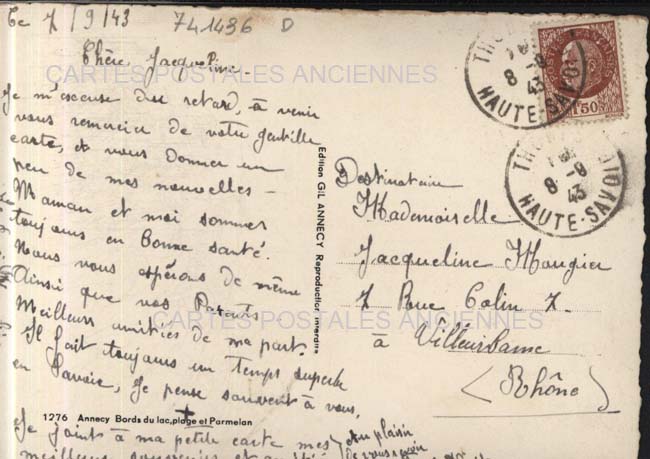 Ce 7/9/43
741436 D
Chère Jacqueline
CARTES POSTALES ANCIENNES
Je m'excuse du retard, à venir
vous remercier de votre gentille
carte, et vous donner un
peu de mes nouvelles -
Maman et moi sommes
toujours en bonne santé.
Nous vous espérons de même
Ainsi que vos Parents
Meilleurs amitiés de ma part.
Il fait toujours un temps superbe
en Savoie, Je pense souvent à vous.
1276 Annecy Bords du lac, plage et Parmelan
Je joint à ma petite carte mes
meilleurs souvenirs et
Au plaisir
de vous revoir
Edition GIL ANNECY Reproduction interdite
Destinataire
Mademoiselle
Jacqueline Mougier
7 Rue Colin 7.
à Villeurbanne
(Rhône)
CARTES POSTALES ANCIENNES
8 -9
43
HAUTE-SAVOIE
1F50
8 -9
43
HAUTE-SAVOIE